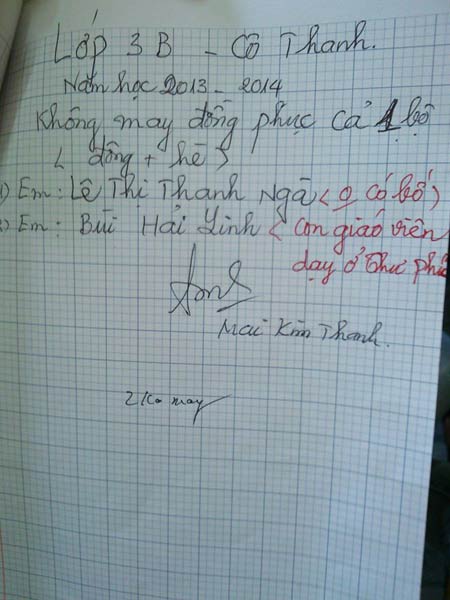 Lớp 3B - Cô Thanh.
Năm học 2013 - 2014
Không may đồng phục cả 1 bộ
< đông + hè >
1) Em: Lê Thị Thanh Ngã < 0 có bố >
2) Em: Bùi Hải Linh < con giáo viên
dạy ở Thư phú
Mai Kim Thanh.
2 Ko may